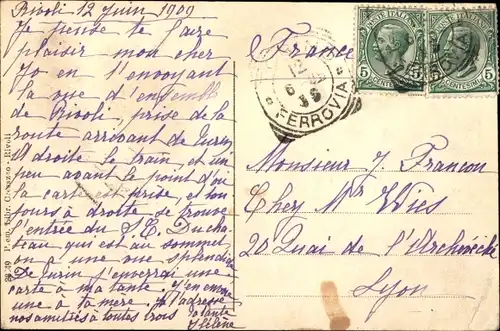 Rivoli 12 Juin 1909
Je pense te faire
plaisir mon cher
Jo en t'envoyant
la vue d'ensemble
de Rivoli, prise de la
route arrivant de Turin
A droite le train et un
peu avant le point d'où
la carte est prise, et tou
jours à droite se trouve
l'entrée du Duchâ
teau qui est au sommet,
on a une vue splendide
De Turin j'enverrai une
carte à ma tante. J'en envoie
une à ta mere. Je t'adresse
nos amitiés à toutes trois
ta tante
Hélène
(France)
Monsieur J. Francon
Chez Mr Wies
20 Quai de l'Archevêché
Lyon
POSTE ITALIANE
5 CENTESIMI 5
POSTE ITALIANE
CENTESIMI 5
FERROVIA
OVIA
Rivoli